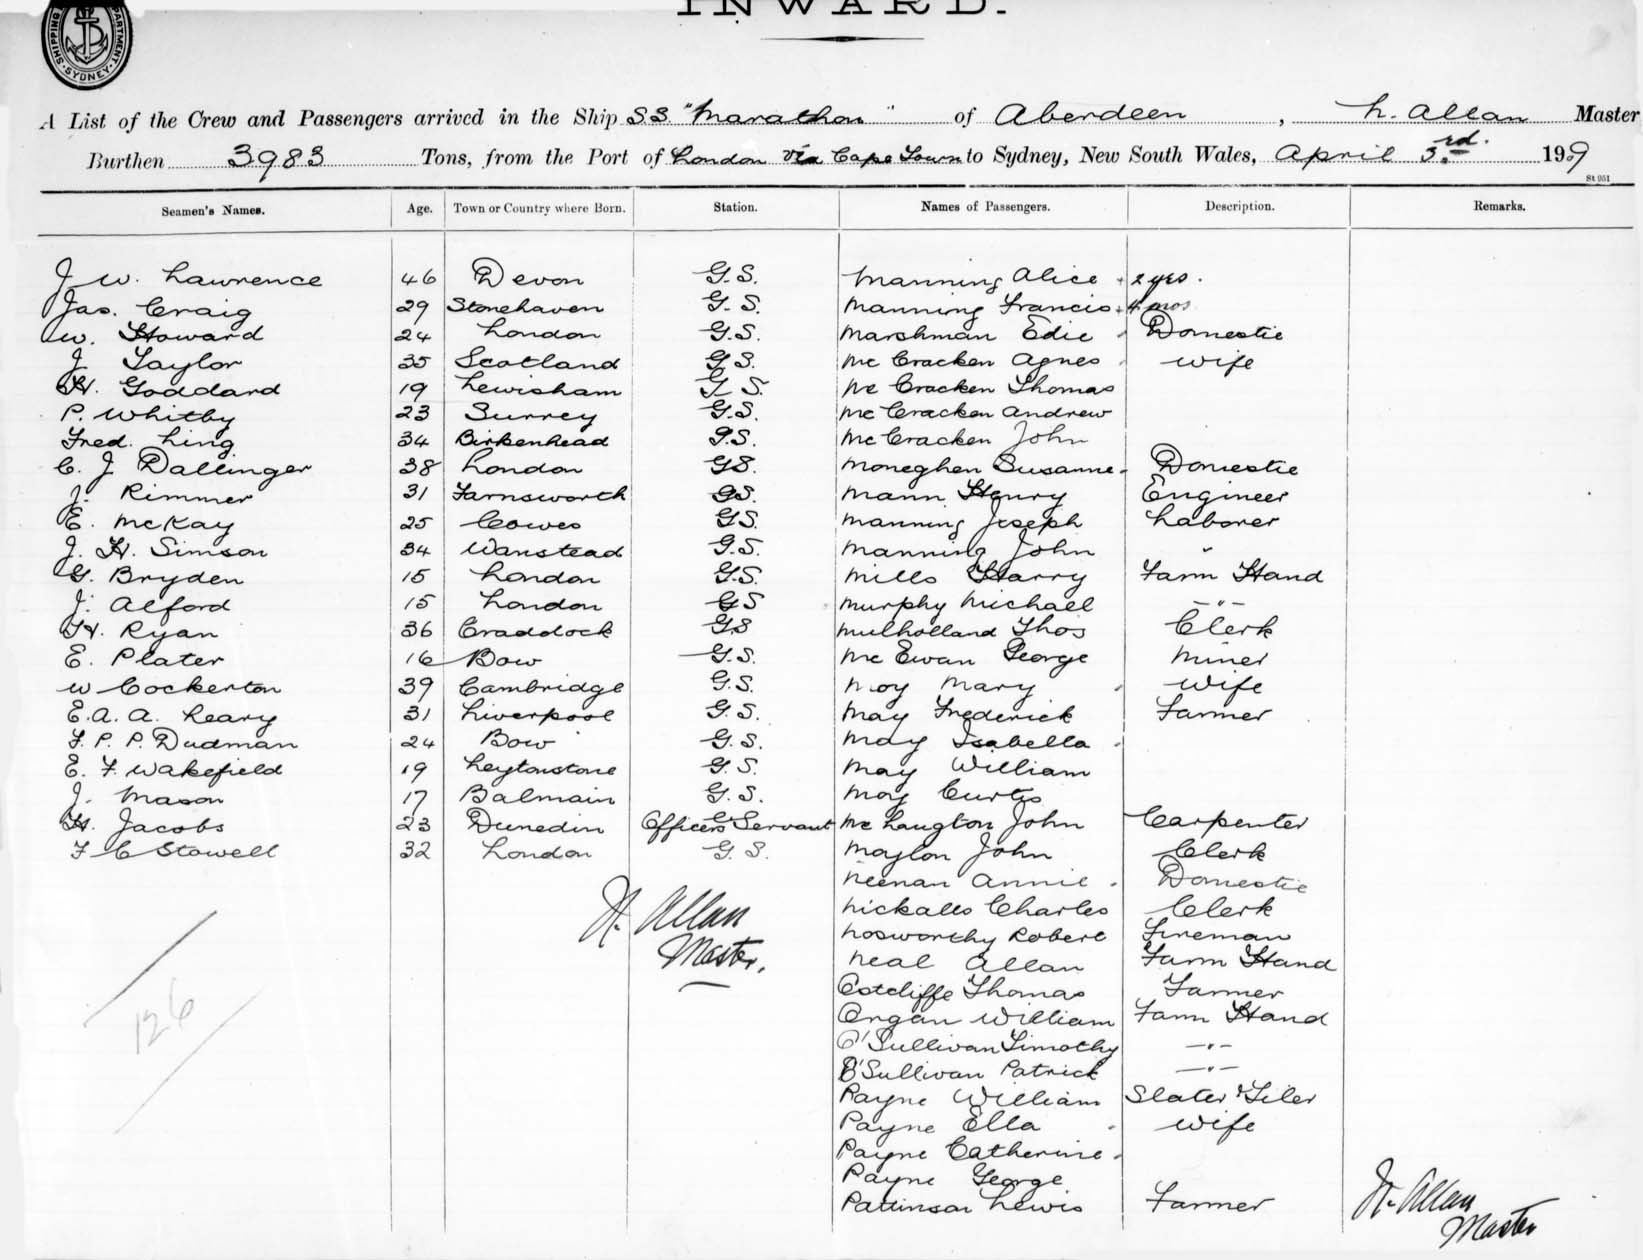 INWARD.
SHIPPING DEPARTMENT · SYDNEY ·
A List of the Crew and Passengers arrived in the Ship S.S. "Marathon" of Aberdeen, H. Allan Master
Burthen 3983 Tons, from the Port of London via Cape Town to Sydney, New South Wales, April 3rd. 1909
St 951
Seamen's Names. Age. Town or Country where Born. Station. Names of Passengers. Description. Remarks.
J W. Lawrence 46 Devon G.S. Manning Alice 2 yrs.
Jas. Craig 29 Stonehaven G.S. Manning Francis 4 mos
W. Howard 24 London G.S. Marshman Edie Domestic
J Taylor 35 Scotland G.S. McCracken Agnes Wife
H. Goddard 19 Lewisham G.S. McCracken Thomas
P. Whitby 23 Surrey G.S. McCracken Andrew
Fred. Ling 34 Birkenhead G.S. McCracken John
C. J Dallinger 38 London G.S. Moneghen Susanne Domestic
J. Rimmer 31 Farnsworth G.S. Mann Henry Engineer
E. McKay 25 Cowes G.S. Manning Joseph Laborer
J. H. Simson 34 Wanstead G.S. Manning John "
G. Bryden 15 London G.S. Mills Harry Farm Hand
J. Alford 15 London G.S Murphy Michael -"-
H. Ryan 36 Craddock G.S Mulholland Thos Clerk
E. Plater 16 Bow G.S. McEwan George Miner
W Cockerton 39 Cambridge G.S. May Mary Wife
E.A.A. Leary 31 Liverpool G.S. May Frederick Farmer
F. P. P. Dudman 24 Bow G.S. May Isabella
E. F. Wakefield 19 Leytonstone G.S. May William
J. Mason 17 Balmain G.S. May Curtis
H. Jacobs 23 Dunedin Officers Servant McLaugton John Carpenter
F C Stowell 32 London G.S. Maylon John Clerk
Neenan Annie Domestic
Nickalls Charles Clerk
Nosworthy Robert Fireman
Neal Allan Farm Hand
Ostcliffe Thomas Farmer
Organ William Farm Hand
O'Sullivan Timothy -"-
O'Sullivan Patrick -"-
Payne William Slater & Tiler
Payne Ella Wife
Payne Catherine
Payne George
Pattinson Lewis Farmer
H. Allan
Master.
126
H. Allan
Master